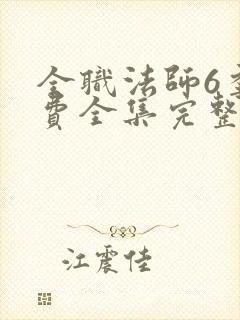 全職法師6
費全集完整
江震佳